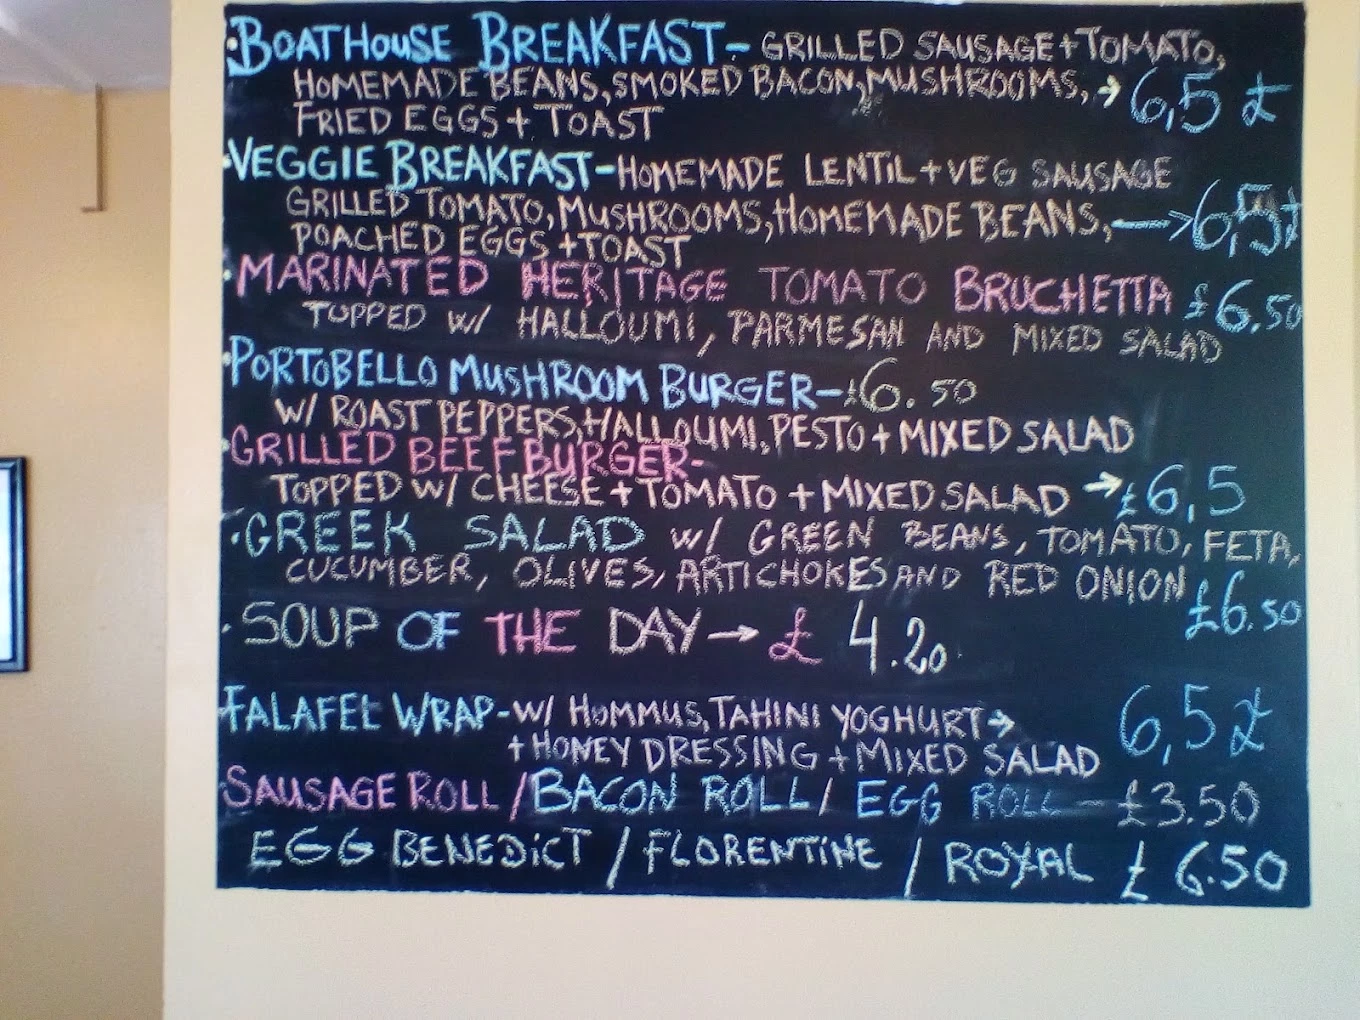 ·BOATHOUSE BREAKFAST- GRILLED SAUSAGE+TOMATO,
HOMEMADE BEANS, SMOKED BACON, MUSHROOMS, → 6,5 £
FRIED EGGS + TOAST
·VEGGIE BREAKFAST-HOMEMADE LENTIL+VEG SAUSAGE
GRILLED TOMATO, MUSHROOMS, HOMEMADE BEANS, → 6,5£
POACHED EGGS +TOAST
·MARINATED HERITAGE TOMATO BRUCHETTA £6.50
TOPPED W/ HALLOUMI, PARMESAN AND MIXED SALAD
·PORTOBELLO MUSHROOM BURGER-£6.50
W/ ROAST PEPPERS, HALLOUMI, PESTO + MIXED SALAD
·GRILLED BEEF BURGER-
TOPPED W/ CHEESE + TOMATO + MIXED SALAD → £6,5
·GREEK SALAD W/ GREEN BEANS, TOMATO, FETA,
CUCUMBER, OLIVES, ARTICHOKES AND RED ONION
£6.50
·SOUP OF THE DAY → £ 4.20
FALAFEL WRAP-W/ HUMMUS, TAHINI YOGHURT → 6,5 £
+ HONEY DRESSING + MIXED SALAD
SAUSAGE ROLL / BACON ROLL / EGG ROLL - £3.50
EGG BENEDICT / FLORENTINE / ROYAL £ 6.50